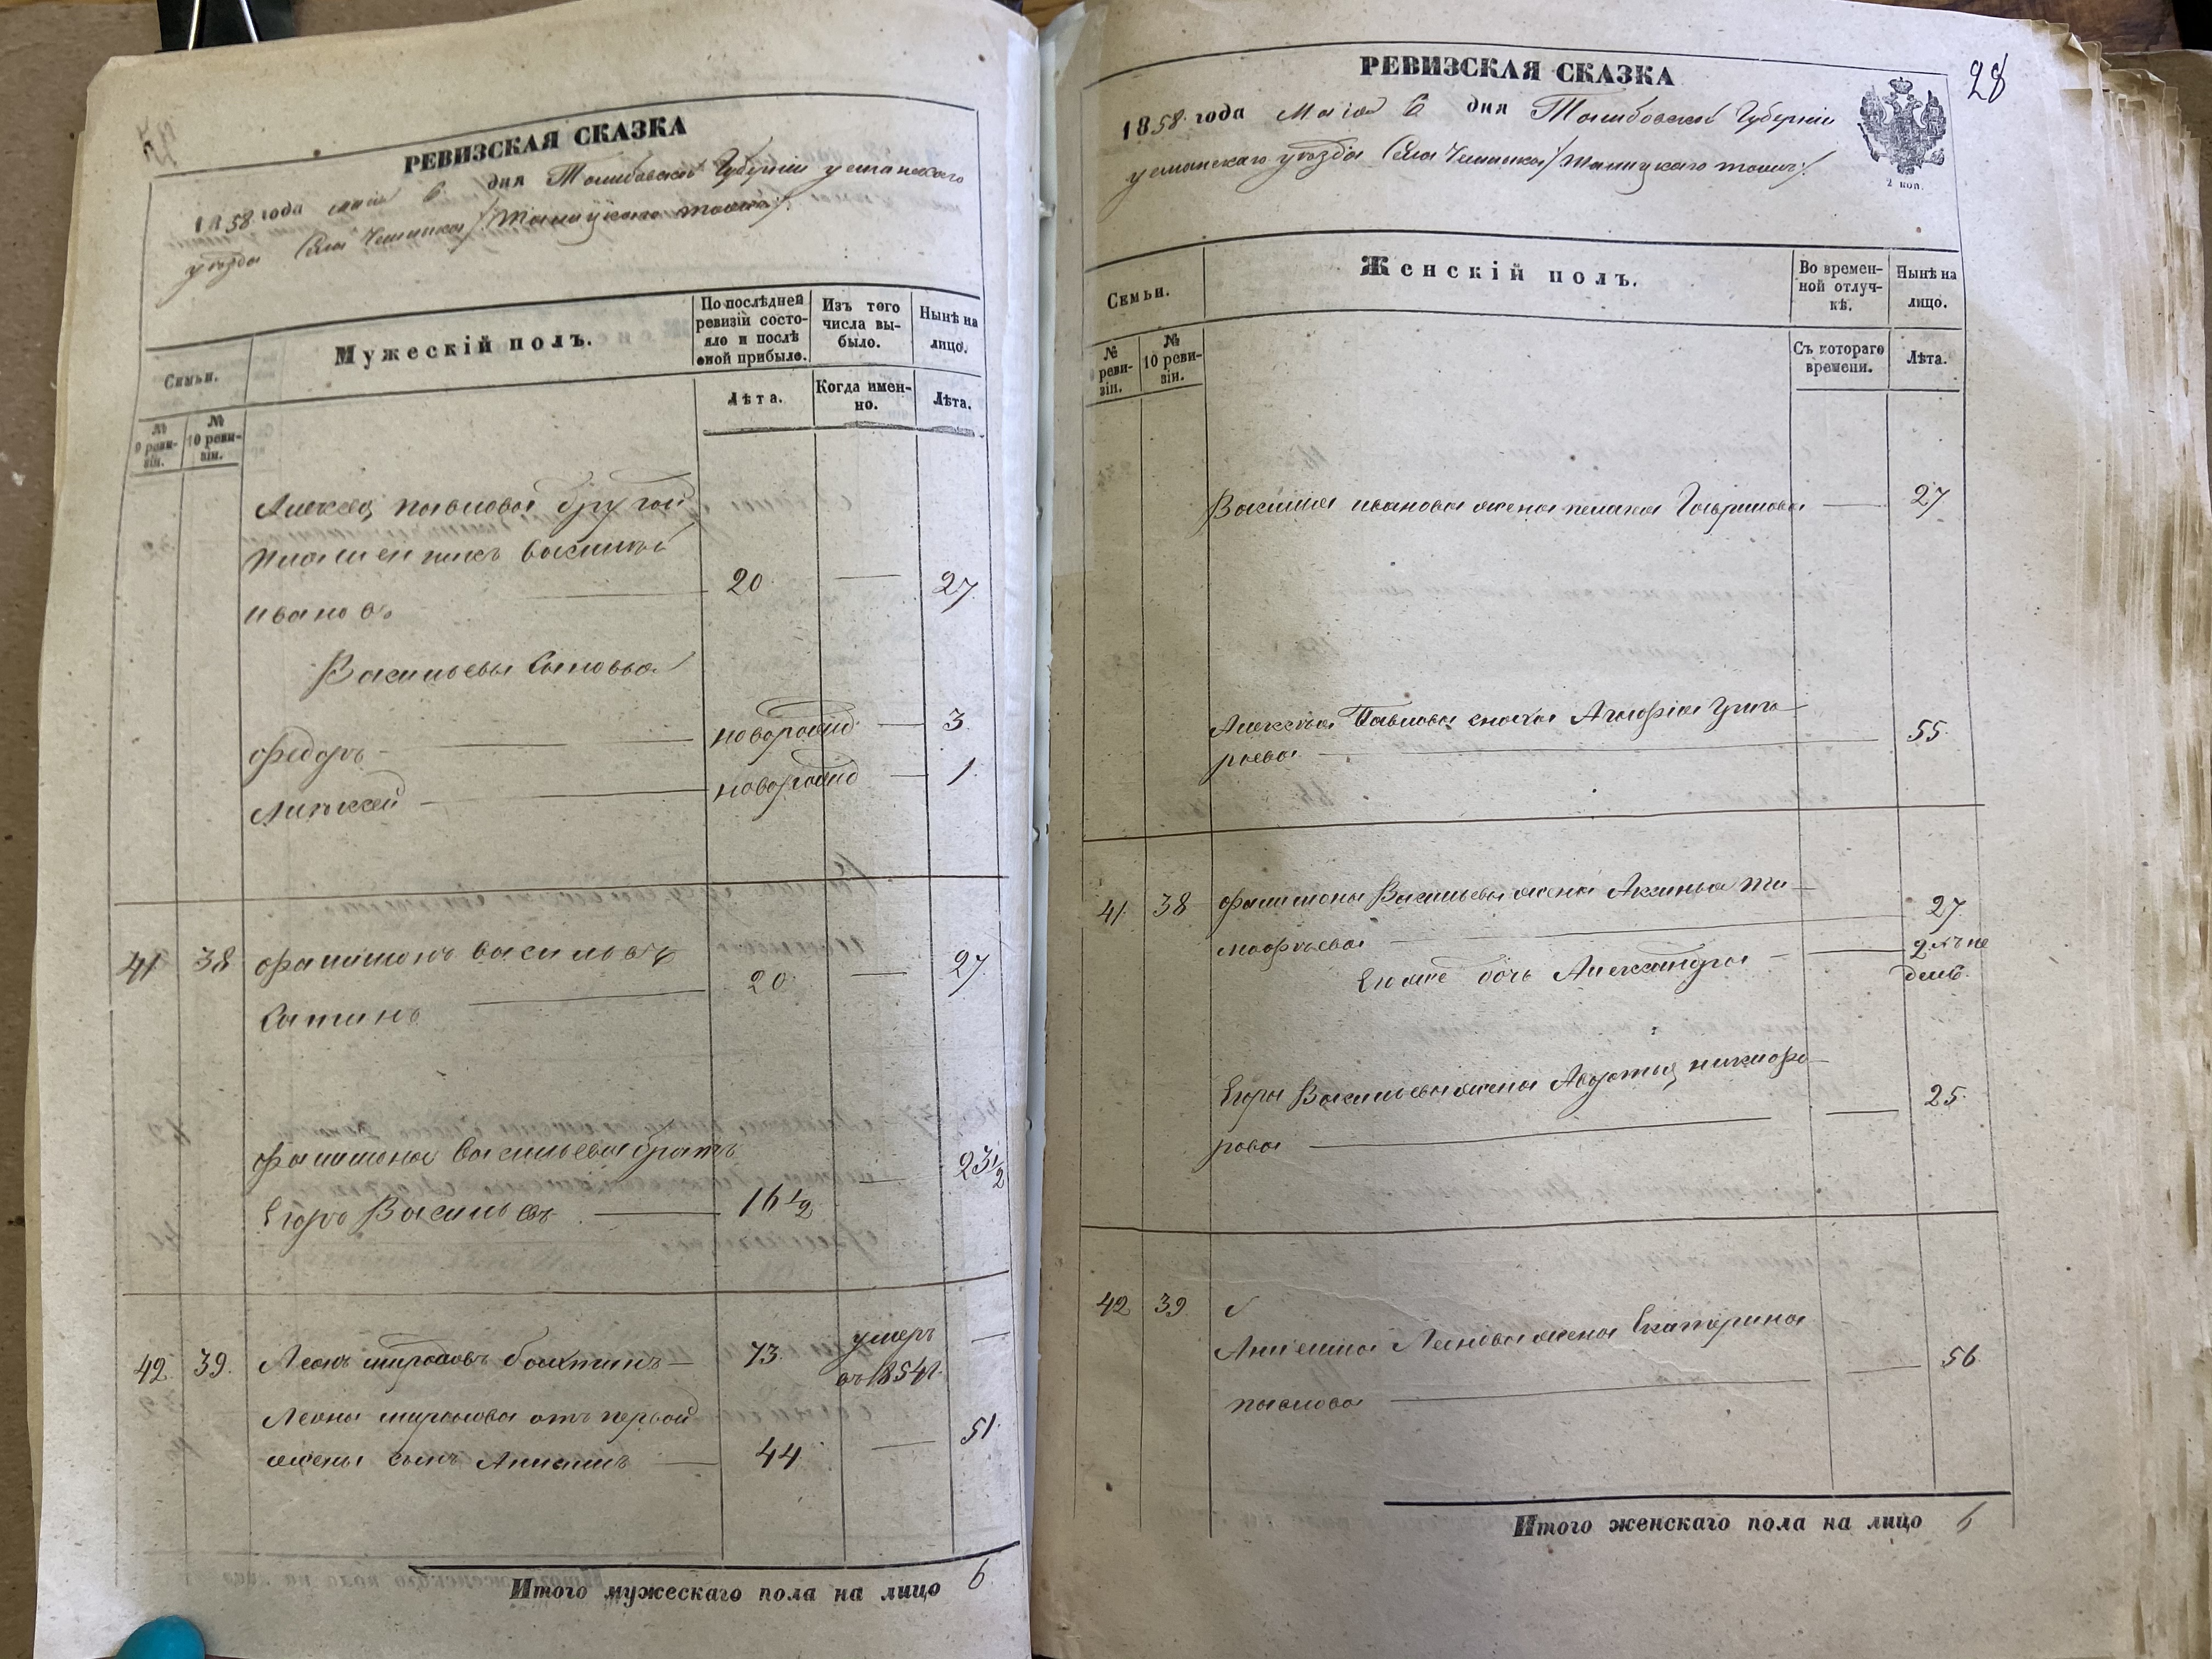 РЕВИЗСКАЯ СКАЗКА
1858 года мая 6 дня Тамбовской Губерніи усманскаго
уѣзда Села
Семьи.
Мужескій полъ.
По послѣдней ревизіи состояло и послѣ оной прибыло.
Изъ того числа выбыло.
Нынѣ на лицо.
№ 9 ревизіи.
№ 10 ревизіи.
Лѣта.
Когда именно.
Лѣта.
Алексѣя павлова другой
племенникъ василій
ивановъ 20 — 27
Васильевы Сыновья
федоръ — новорожд — 3
Алексей — новорожд — 1.
41 38 филимонъ васильевъ
Сатинъ 20 — 27
филимона васильева братъ
Егоръ Васильевъ — 16 1/2 — 23 1/2
42 39. Леонъ мироновъ бахтинъ — 73. умеръ —
въ 1854г.
Леона миронова отъ первой
жены сынъ Анисимъ — 44 — 51.
Итого мужескаго пола на лицо 6
28
РЕВИЗСКАЯ СКАЗКА
1858 года Мая 6 дня Тамбовской Губерніи
усманскаго уѣзда Села
2 коп.
Семьи.
Женскій полъ.
Во временной отлучкѣ.
Нынѣ на лицо.
№ ревизіи.
№ 10 ревизіи.
Съ котораго времени.
Лѣта.
Василия иванова жена пелагея Гаврилова — 27
Алексѣя Павлова сноха Агафія Григо-
рьева — 55.
41. 38 филимона Васильева жена Аксинья ти-
мофѣева — 27
Его же дочь Александра — — 2. не
дель.
Егора Васильева жена Авдотья никифо-
рова — — 25.
42 39.
Анисима Леонова жена Екатерина
павлова — — 56
Итого женскаго пола на лицо 6